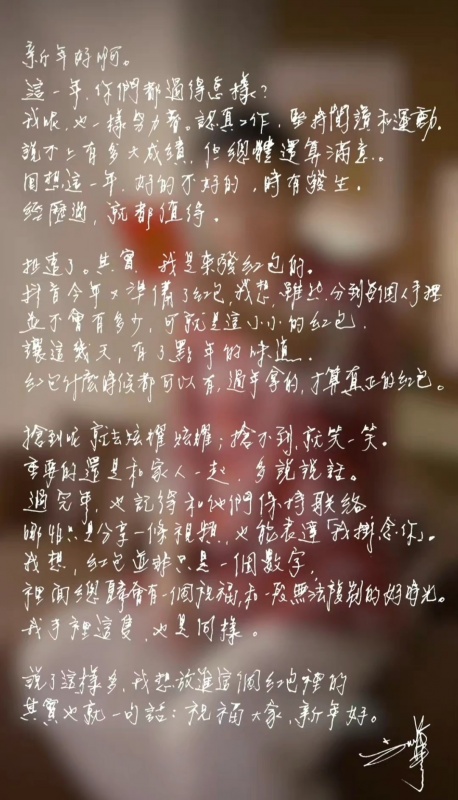 新年好啊。
這一年,你們都過得怎樣?
我呢,也一樣努力著。認真工作,堅持閱讀和運動。
說不上有多大成績,但總體還算滿意。
回想這一年,好的不好的,時有發生。
經歷過,就都值得。
扯遠了。其實,我是來發紅包的。
抖音今年又準備了紅包,我想,雖然分到每個人手裡
並不會有多少,可就是這小小的紅包,
讓這幾天,有了點年的味道。
紅包什麼時候都可以有,過年拿的,才算真正的紅包。
搶到呢就去炫耀炫耀;搶不到,就笑一笑。
重要的還是和家人一起,多說說話。
過完年,也記得和他們保持联络
哪怕只是分享一條視頻,也能表達「我掛念你」。
我想,紅包並非只是一個數字,
裡面總歸會有一個祝福,和一段無法複製的好時光。
我手裡這隻,也是同樣。
說了這樣多,我想放進這個紅包裡的
其實也就一句話:祝福大家,新年好。